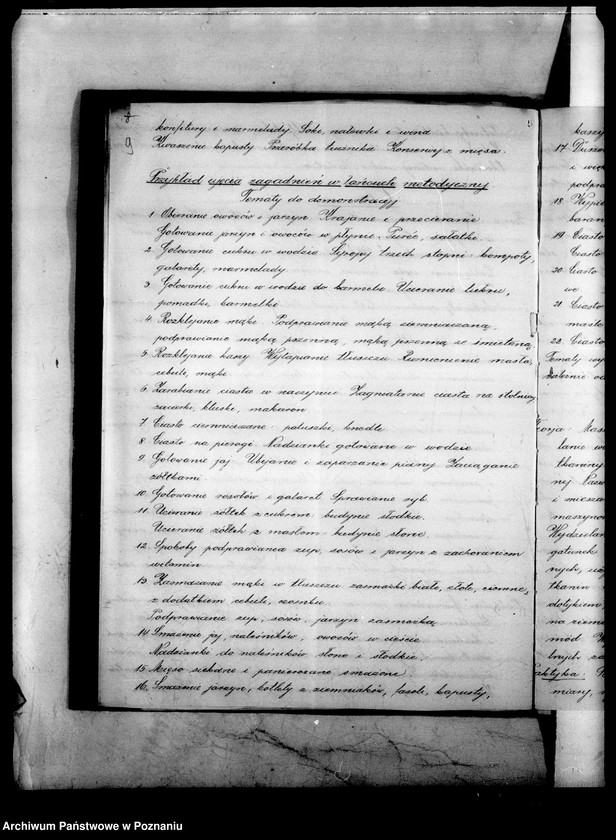 9
konfitury i marmelady. Soki, nalewki i wina
Kwaszenie kapusty Przeróbka tłuszczu Konserwy z mięsa.
Przykład ujęcia zagadnień w łańcuch metodyczny
Tematy do demonstracji
1 Obieranie owoców i jarzyn Krajanie i przecieranie
Gotowanie jarzyn i owoców w płynie Purée, sałatki
2 Gotowanie cukru w wodzie Syropy trzech stopni: kompoty,
galarety, marmelady
3 Gotowanie cukru w wodzie do karmelu. Ucieranie lukru,
pomadki, karmelki
4. Rozklejanie mąki. Podprawianie mąką ziemniaczaną,
podprawianie mąką pszenną, mąką pszenną ze śmietaną
5 Rozklejanie kaszy Wytapianie tłuszczu Rumienienie masła,
cebuli, mąki
6 Zarabianie ciasta w naczyniu Zagniatanie ciasta na stolnicy
zacierki, kluski, makaron
7 Ciasto ziemniaczane: paluszki, knedle
8 Ciasto na pierogi. Nadzianki gotowane w wodzie
9 Gotowanie jaj Ubijanie i zaparzanie piany Zaciąganie
żółtkami
10 Gotowanie rosołów i galaret Sprawianie ryb.
11 Ucieranie żółtek z cukrem budynie słodkie.
Ucieranie żółtek z masłem budynie słone
12 Sposoby podprawiania zup, sosów i jarzyn z zachowaniem
witamin
13 Zasmażanie mąki w tłuszczu zasmażki białe, złote, ciemne,
z dodatkiem cebuli, czosnku.
Podprawianie zup, sosów, jarzyn zasmażką
14 Smażenie jaj, naleśników, owoców w cieście
Nadzianki do naleśników słone i słodkie.
15. Mięso siekane i panierowane smażone
16. Smażenie jarzyn, kotlety z ziemniaków, fasoli, kapusty,
kaszy
17
podpra
18
baran
19. Ciasto
Ciasto
20. Ciasto
we
21. Ciasto
masło
22. Ciasto
Tematy
lanie
tkaniny
i miesza
maszyno
gatunek
nych,
tkanin
dotykiem
na
mód
tnych
miary,
Archiwum Państwowe w Poznaniu